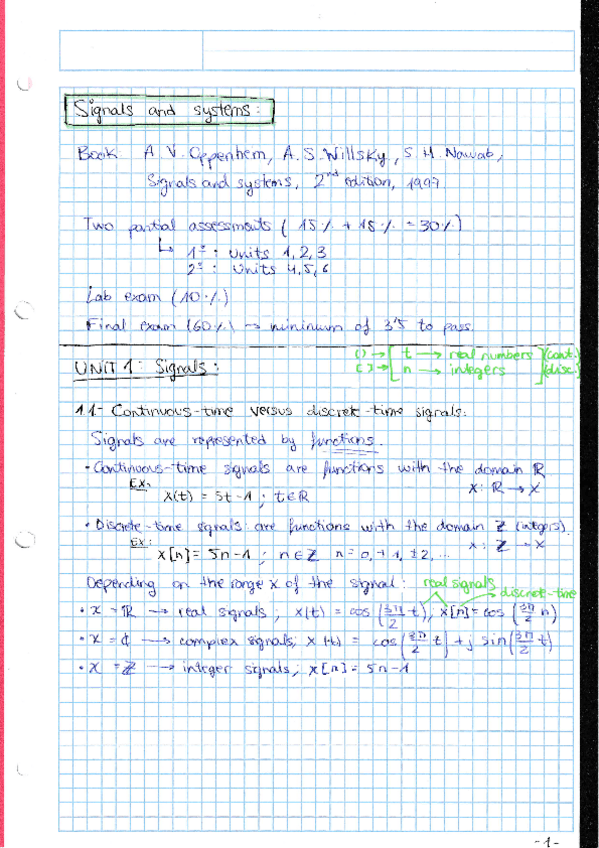 Signals and systems:
Book A. V. Oppenhem, A. S. Willsky, S. H. Nawab,
Signals and systems, 2nd edition, 1997
Two partial assessments (15% + 15% = 30%)
↳ 1º: Units 1, 2, 3
2º: Units 4, 5, 6
Lab exam (10%)
Final exam (60%) → minimum of 3'5 to pass.
UNIT 1: Signals:
() → [ t → real numbers ] (cont.)
[] → [ n → integers ] (disc.)
1.1- Continuous-time versus discrete-time signals:
Signals are represented by functions.
• Continuous-time signals are functions with the domain ℝ
Ex: x(t) = 5t - 1 ; t∈ℝ x: ℝ → X
• Discrete-time signals: are functions with the domain ℤ (integers).
Ex: x[n] = 5n - 1 ; n∈ℤ n = 0, ±1, ±2, ... x: ℤ → X
Depending on the range X of the signal: real signals discrete-time
• X = ℝ → real signals ; x(t) = cos (3π/2 t), x[n] = cos (3π/2 n)
• X = ℂ → complex signals; x(t) = cos(3π/2 t) + j sin(3π/2 t)
• X = ℤ → integer signals; x[n] = 5n - 1
-1-